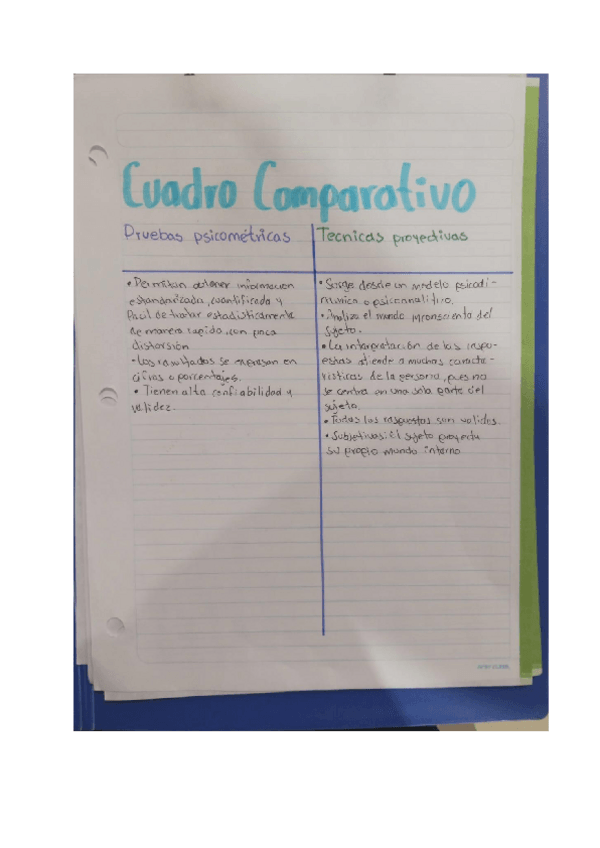 Cuadro Comparativo
Pruebas psicométricas
• Permiten obtener información
estandarizada, cuantificada y
fácil de tratar estadísticamente
de manera rapida, con poca
distorsión
• Los resultados se expresan en
cifras o porcentajes.
• Tienen alta confiabilidad y
validez.
Tecnicas proyectivas
• Surge desde un modelo psicodi-
námico o psicoanalítico.
• Analiza el mundo inconsciente del
sujeto.
• La interpretación de las respu-
estas atiende a muchas caracte-
rísticas de la persona, pues no
se centra en una sola parte del
sujeto.
• Todas las respuestas son validas.
• Subjetivas: El sujeto proyecta
su propio mundo interno